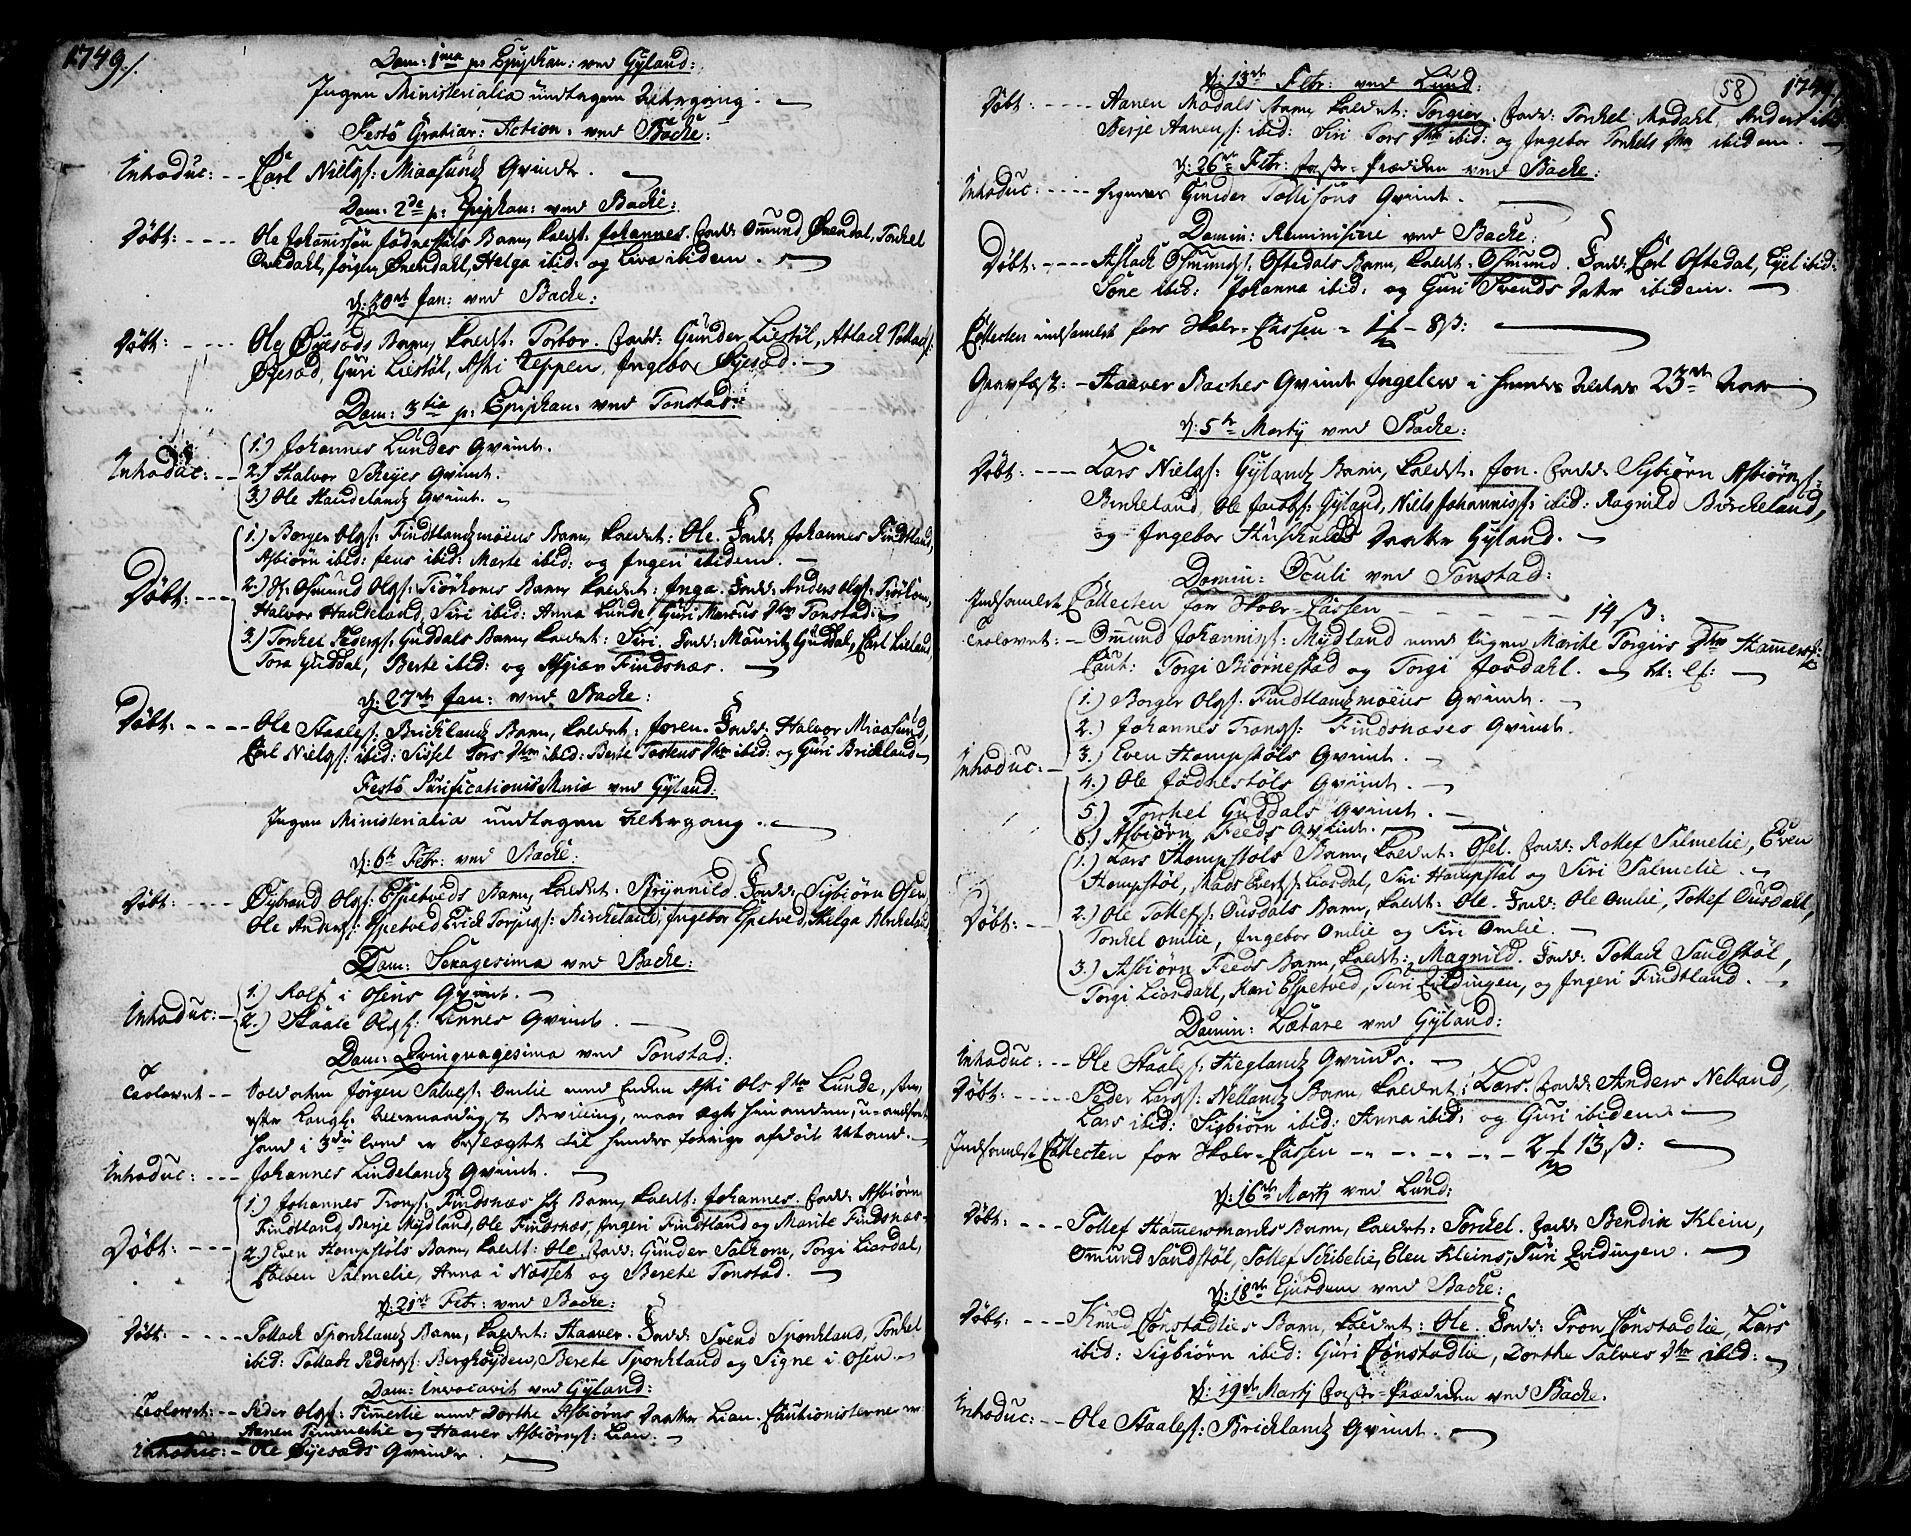 1749./.
Dom: 1ma p: Epiphan: ved Gyland:
Ingen Ministerialia undtagen Altergang.
Festo Gratiar: Action: ved Backe:
Introduc: -- Carl Nielss: Miaasundz Qvinde.
Dom: 2de p: Epiphan: ved Backe:
Döbt: ---- Ole Johannissön Jödnestöls Barn, kaldet: Johannes. Fadd: Omund Ovedal, Torkel
Ovedahl, Jörgen Ovedahl, Helga ibid: og Siva ibidem.
d: 20de Jan: ved Backe:
Döbt: ---- Ole Öyesads Barn, kaldet: Torbor. Fadd: Gunder Liestöl, Atlack Tollacs:
Öyesad, Guri Liestöl, Aski Teppen, Ingebor Öyesad.
Dom: 3tia p: Epiphan: ved Tonstad:
Introduc: -- 1.) Johannes Lundes Qvinde.
2.) Halvor Skeyes Qvinde.
3.) Ole Haudelandz Qvinde.
Döbt: -- 1.) Borger Olss: Findtlandzmoens Barn, kaldet: Ole. Fadd: Johannes Findtland,
Asbiörn ibid: Jens ibid: Marte ibid: og Ingeri ibidem.
2.) Osmund Olss: Tiörhoms Barn, kaldet: Inga. Fadd: Anders Olss: Tiörhom,
Halvor Haukeland, Siri ibid: Anna Lunde, Guri Marcus Dter Tonstad:
3.) Torckel Peders: Guddals Barn, kaldet: Siri. Fadd: Mauritz Guddal, Carl Liland,
Tora Guddal, Berte ibid: og Asgiær Findsnæs.
d: 27de Jan: ved Backe:
Döbt: ---- Ole Staaless: Bricklandz Barn, kaldet: Joren. Fadd: Halvor Miaasund,
Carl Nielss: ibid: Sissel Tors Dter ibid: Berte Torkens Dter ibid: og Guri Brickland
Festo Purificationis Mariæ ved Gyland:
Ingen Ministerialia undtagen Altergang.
d: 6te Febr: ved Backe:
Döbt: ---- Sybrand Olss: Espetveds Barn, kaldet: Brynnild. Fadd: Sigbiörn Osen,
Ole Anderss: Espetved, Erick Torgiss: Birckeland, Ingebor Espetved, Helga Birckeland
Dom: Sexagesima ved Backe:
Introduc: - 1.) Rolf i Osens Qvinde.
2.) Staale Olss: Lennes Qvinde.
Dom: Qvinquagesima ved Tonstad:
Troelovet -- Soldaten Jörgen Salvess: Omlie med Enken Aski Ols Dter Lunde, som,
efter Kongl: Allernaadigste Bevilling, maae ægte hinanden, u-andseet
hand i 3die leed er beslægtet til hendes forrige afdöde Mand.
Introduc: --- Johannes Lindelandz Qvinde.
Döbt: --- 1.) Johannes Trons: Findsnæs sit Barn, kaldet: Johannes. Fadd: Asbiörn
Findtland, Berje Mydland, Ole Findsnæs, Ingeri Findtland og Marite Findsnæs.
2.) Even Hompstöls Barn, kaldet: Ole. Fadd: Gunder Salhom, Torgi Liordal,
Colben Salmelie, Anna i Næsset og Berete Tonstad.
d: 21de Febr: ved Backe:
Döbt: ---- Tollack Sporklandz Barn, kaldet: Haaver. Fadd: Svend Sporkland, Torkel
ibid: Tollack Peders: Berghöyden, Berete Sporkland og Signe i Osen.
Dom: Invocavit ved Gyland:
Troelovet: -- Peder Olss: Timerlie med Dorthe Asbiörns Daatter Lian. Cautionisterne er
Aanen Timerlie og Haaver Asbiörnss: Lian.
Introduc: - Ole Öyesads Qvinde.
58
1749.
d: 13de Febr: ved Lund:
Döbt: ---- Aanen Modals Barn kaldet: Torgier. Fadd: Torckel Modahl, Anders ibid:
Berje Aanens: ibid: Siri Tors Dter ibid: og Ingebor Torkels Dter ibidem.
d: 26de Febr: Faste-Prædiken ved Backe:
Introduc: ---- Gunder Tollisöns Qvinde.
Domin: Reminiscere ved Backe:
Döbt: ---- Aslack Osmundss: Oftedals Barn, kaldet: Osmund. Fadd: Carl Oftedal, Eyel ibid:
Tone ibid: Johanna ibid: og Guri Svends Dater ibidem.
Collecten indsamlet for Skole-Cassen = 1 – 8 ß:
Gravfæst: - Haaver Backes Qvinde Ingelev i hendes Alders 23de Aar
d: 5te Martij ved Backe:
Döbt: --- Lars Nielss: Gylandz Barn, kaldet: Jon. Fadd: Sigbiörn Asbiörnss:
Birkeland, Ole Jacobs: Gyland, Niels Johanniss: ibid: Ragnild Börckeland,
og Ingebor Daatter Gyland.
Domin: Oculi ved Tonstad:
Indsamlet Collecten for Skole-Cassen - - - - 14 ß:
Troelovet: - Omund Johanniss: Mydland med Pigen Marite Torgirs Dter
Caut: Torgi Biörnestad og Torgi Josdahl.
Introduc: - 1.) Borger Olss: Findtlandzmoens Qvinde.
2.) Johannes Trons: Findsnæses Qvinde.
3.) Even Hompstöls Qvinde.
4.) Ole Jödnestöls Qvinde.
5.) Torckel Guddals Qvinde.
6.) Asbiörn Feeds Qvinde.
Döbt: -- 1.) Lars Hompstöls Barn, kaldet: Osel. Fadd: Rollef Salmelie, Even
Hompstöl, Mads Everts: Liosdal, Siri Hompstöl og Siri Salmelie.
2.) Ole Tollefs: Ousdals Barn, kaldet: Ole. Fadd: Ole Omlie, Tollef Ousdahl,
Torckel Omlie, Ingebor Omlie og Siri Omlie.
3.) Asbiörn Feeds Barn, kaldet: Magnild. Fadd: Tollack Sandstöl,
Torgi Liordahl, Kari Espetved, Turi Qvidingen, og Ingeri Findtland.
Domin: Lætare ved Gyland:
Introduc: -- Ole Staaless: Heglandz Qvinde.
Döbt: ---- Peder Larss: Nellandz Barn, kaldet: Lars. Fadd: Anders Nelland,
Lars ibid: Sigbiörn ibid: Anna ibid: og Guri ibidem.
Indsamlet Collecten for Skole-Cassen - - - - - 2 13 ß:
d: 16de Martij ved Lund:
Döbt: --- Tollef Hamersmarks Barn, kaldet: Torckel. Fadd: Bendix Klein,
Omund Sandstöl, Tollef Skibelie, Elen Kleins, Turi Qvidingen.
d: 18de Ejusdem ved Backe:
Döbt: --- Knud Constadlies Barn, kaldet: Ole. Fadd: Tron Constadlie, Lars
ibid: Sigbiörn ibid: Guri Constadlie, Dorthe Salves Dter ibid:
d: 19de Martij Faste-Prædiken ved Backe.
Introduc: -- Ole Staaless: Bricklandz Qvinde.